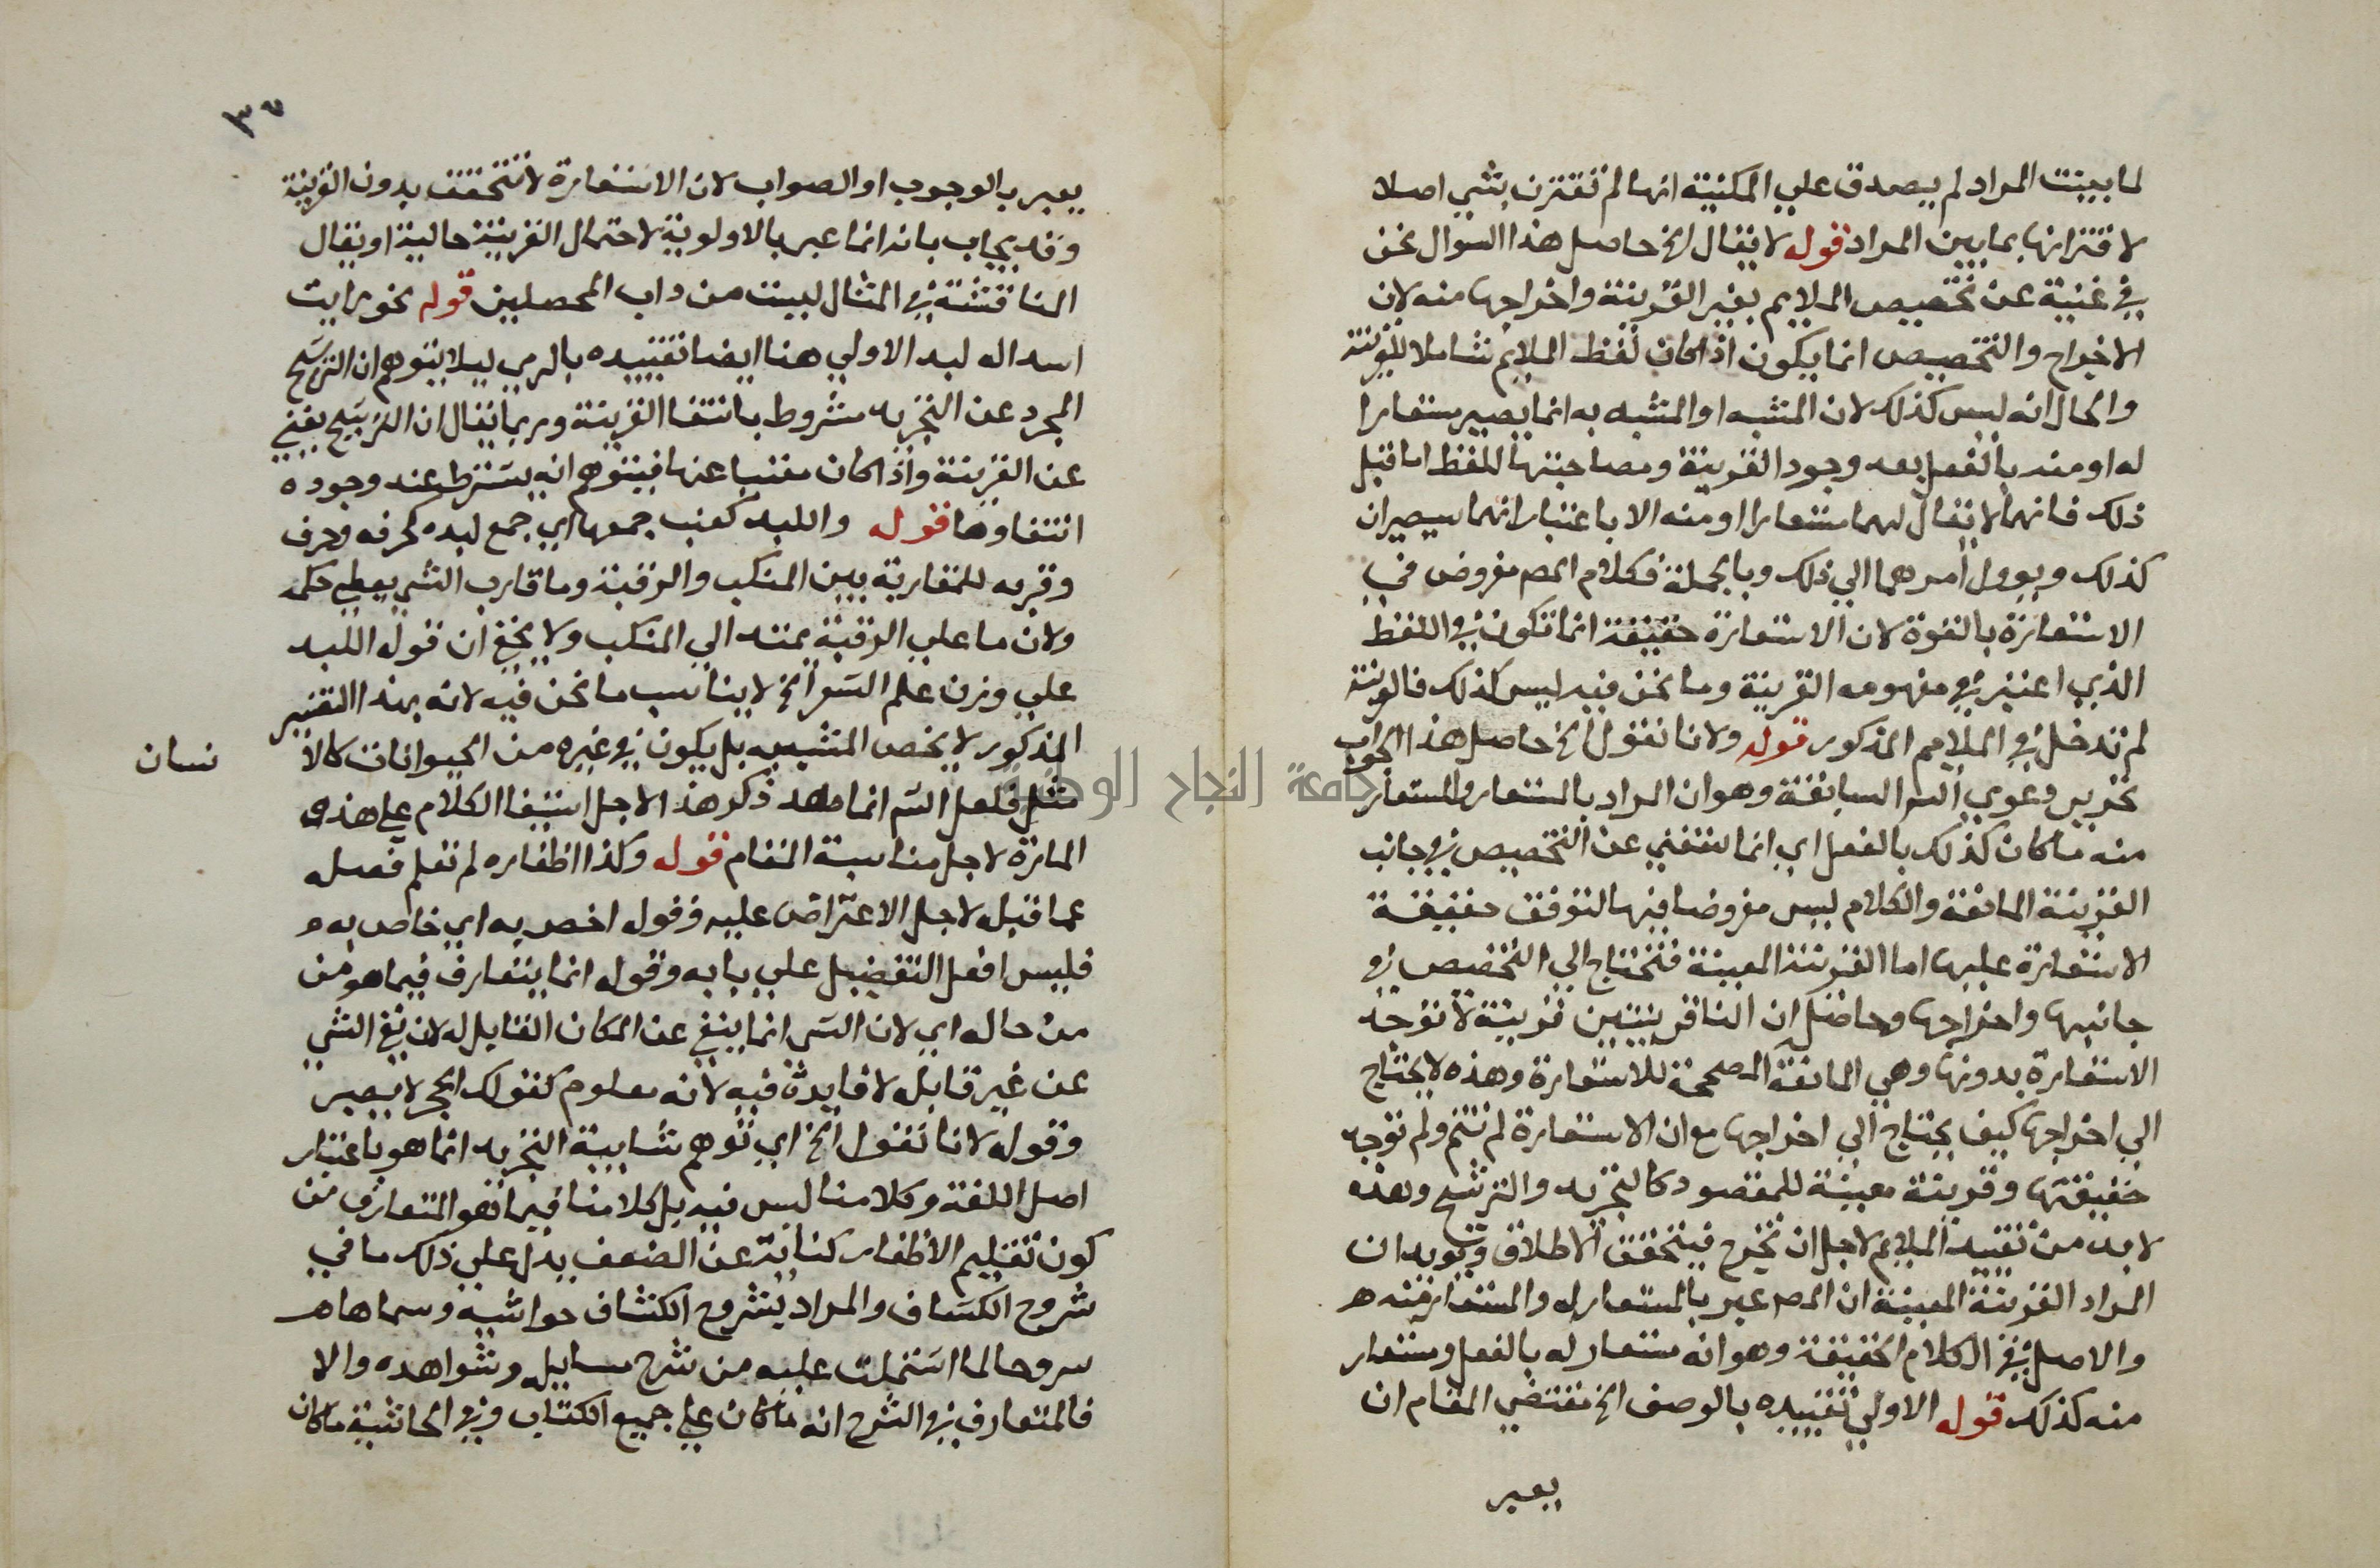 لما بينت المراد لم يصدق علي المكنية انها لم تقترن بشي اصلا
لاقترانها بما يبين المراد قوله لا يقال الخ حاصل هذا السوال نحن
في غنية عن تخصيص الملايم بغير القرينة واخراجها منه لان
الاخراج والتخصيص انما يكون اذا كان لفظ الملايم شاملا للقرينة
والحال انه ليس كذلك لان المشبه او المشبه به انما يصير مستعارا
له او منه بالفعل بعد وجود القرينة ومصاحبتها للفظ اما قبل
ذلك فانهما لا يقال لهما مستعارا او منه الا باعتبار انهما سيصيران
كذلك ويوول امرهما الي ذلك وبالجملة فكلام المصم مفروض في
الاستعارة بالقوة لان الاستعارة حقيقة انما تكون في اللفظ
الذي اعتبر في مفهومه القرينة وما نحن فيه ليس كذلك فالقرينة
لم تدخل في الملايم المذكور قوله ولانا نقول الخ حاصل هذا الجواب
تحرير دعوي السابقة وهو ان المراد بالمستعار والمستعار
منه ما كان كذلك بالفعل اي انما نستغني عن التخصيص في جانب
القرينة المانعة والكلام ليس مفروضا فيها لتوقف حقيقة
الاستعارة عليها اما القرينة المعينة فتحتاج الي التخصيص في
جانبها واخراجها وحاصل ان لنا قرينتين قرينة لا توجد
الاستعارة بدونها وهي المانعة المصححة للاستعارة وهذه لا يحتاج
الي اخراجها كيف يحتاج الي اخراجها مع ان الاستعارة لم تتم ولم توجد
حقيقتها وقرينة معينة للمقصود كالتجريد والترشيح وهذه
لا بد من تقييد الملايم لاجل ان تخرج فيتحقق الاطلاق ويويد ان
المراد القرينة المعينة ان المصـ عبر بالمستعار له والمستعار منه هـ
والاصل في الكلام الحقيقة وهو انه مستعار له بالفعل ومستعار
منه كذلك قوله الاولي تقييده بالوصف الخ مقتضي المقام ان
يعبر
٣٧
يعبر بالوجوب او الصواب لان الاستعارة لا تتحقق بدون القرينة
وقد يجاب بانه انما عبر بالاولوية لاحتمال القرينة حالية او يقال
المناقشة في المثال ليست من داب المحصلين قوله نحو رايت
اسدا له لبد الاولي هنا ايضا تقييده بالرمي ليلا يتوهم ان الترشيح
المجرد عن التجريد مشروط بانتفا القرينة وربما يقال ان الترشيح يغني
عن القرينة واذا كان مغنيا عنها فيتوهم انه يشترط عند وجوده
انتفاوها قوله واللبد كعنب جمعها اي جمع لبده كخرفه وخرف
وقربه للمقاربة بين المنكب والرقبة وما قارب الشي يعطي حكمه
ولان ما علي الرقبة يمتد الي المنكب ولا يخفي ان قوله اللبد
علي وزن علم الشعر الخ لا يناسب ما نحن فيه لانه بهذا التفسير
المذكور لا يخص المشبه به بل يكون في غيره من الحيوانات كالا نسان
مثل فلعل الشم انما ذكر هذا لاجل استيفا الكلام علي هذه
المادة لا جل مناسبة المقام قوله وكذا اظفاره لم تقلم فصله
عما قبله لاجل الاعتراض عليه وقوله اخص به اي خاص به
فليس افعل التفضيل علي بابه وقوله انما يتعارف فيما هو من
من حاله اي لان الشي انما ينفي عن المكان القابل له لان نفي الشي
عن غير قابل لا فايدة فيه لانه معلوم كقولك الحجر لا يبصر
وقوله لانا نقول الخ اي توهم شايبة التجريد انما هو باعتبار
اصل اللغة وكلامنا ليس فيه بل كلامنا فيما هو المتعارف من
كون تقليم الاظفار كناية عن الضعف يدل علي ذلك ما في
شروح الكشاف والمراد بشروح الكشاف حواشيه وسماها هـ
شروحا لما اشتملت عليه من شرح مسايله وشواهده والا
فالمتعارف في الشرح انه ما كان علي جميع الكتاب وفي الحاشية ما كان
جامعة النجاح الوطنية